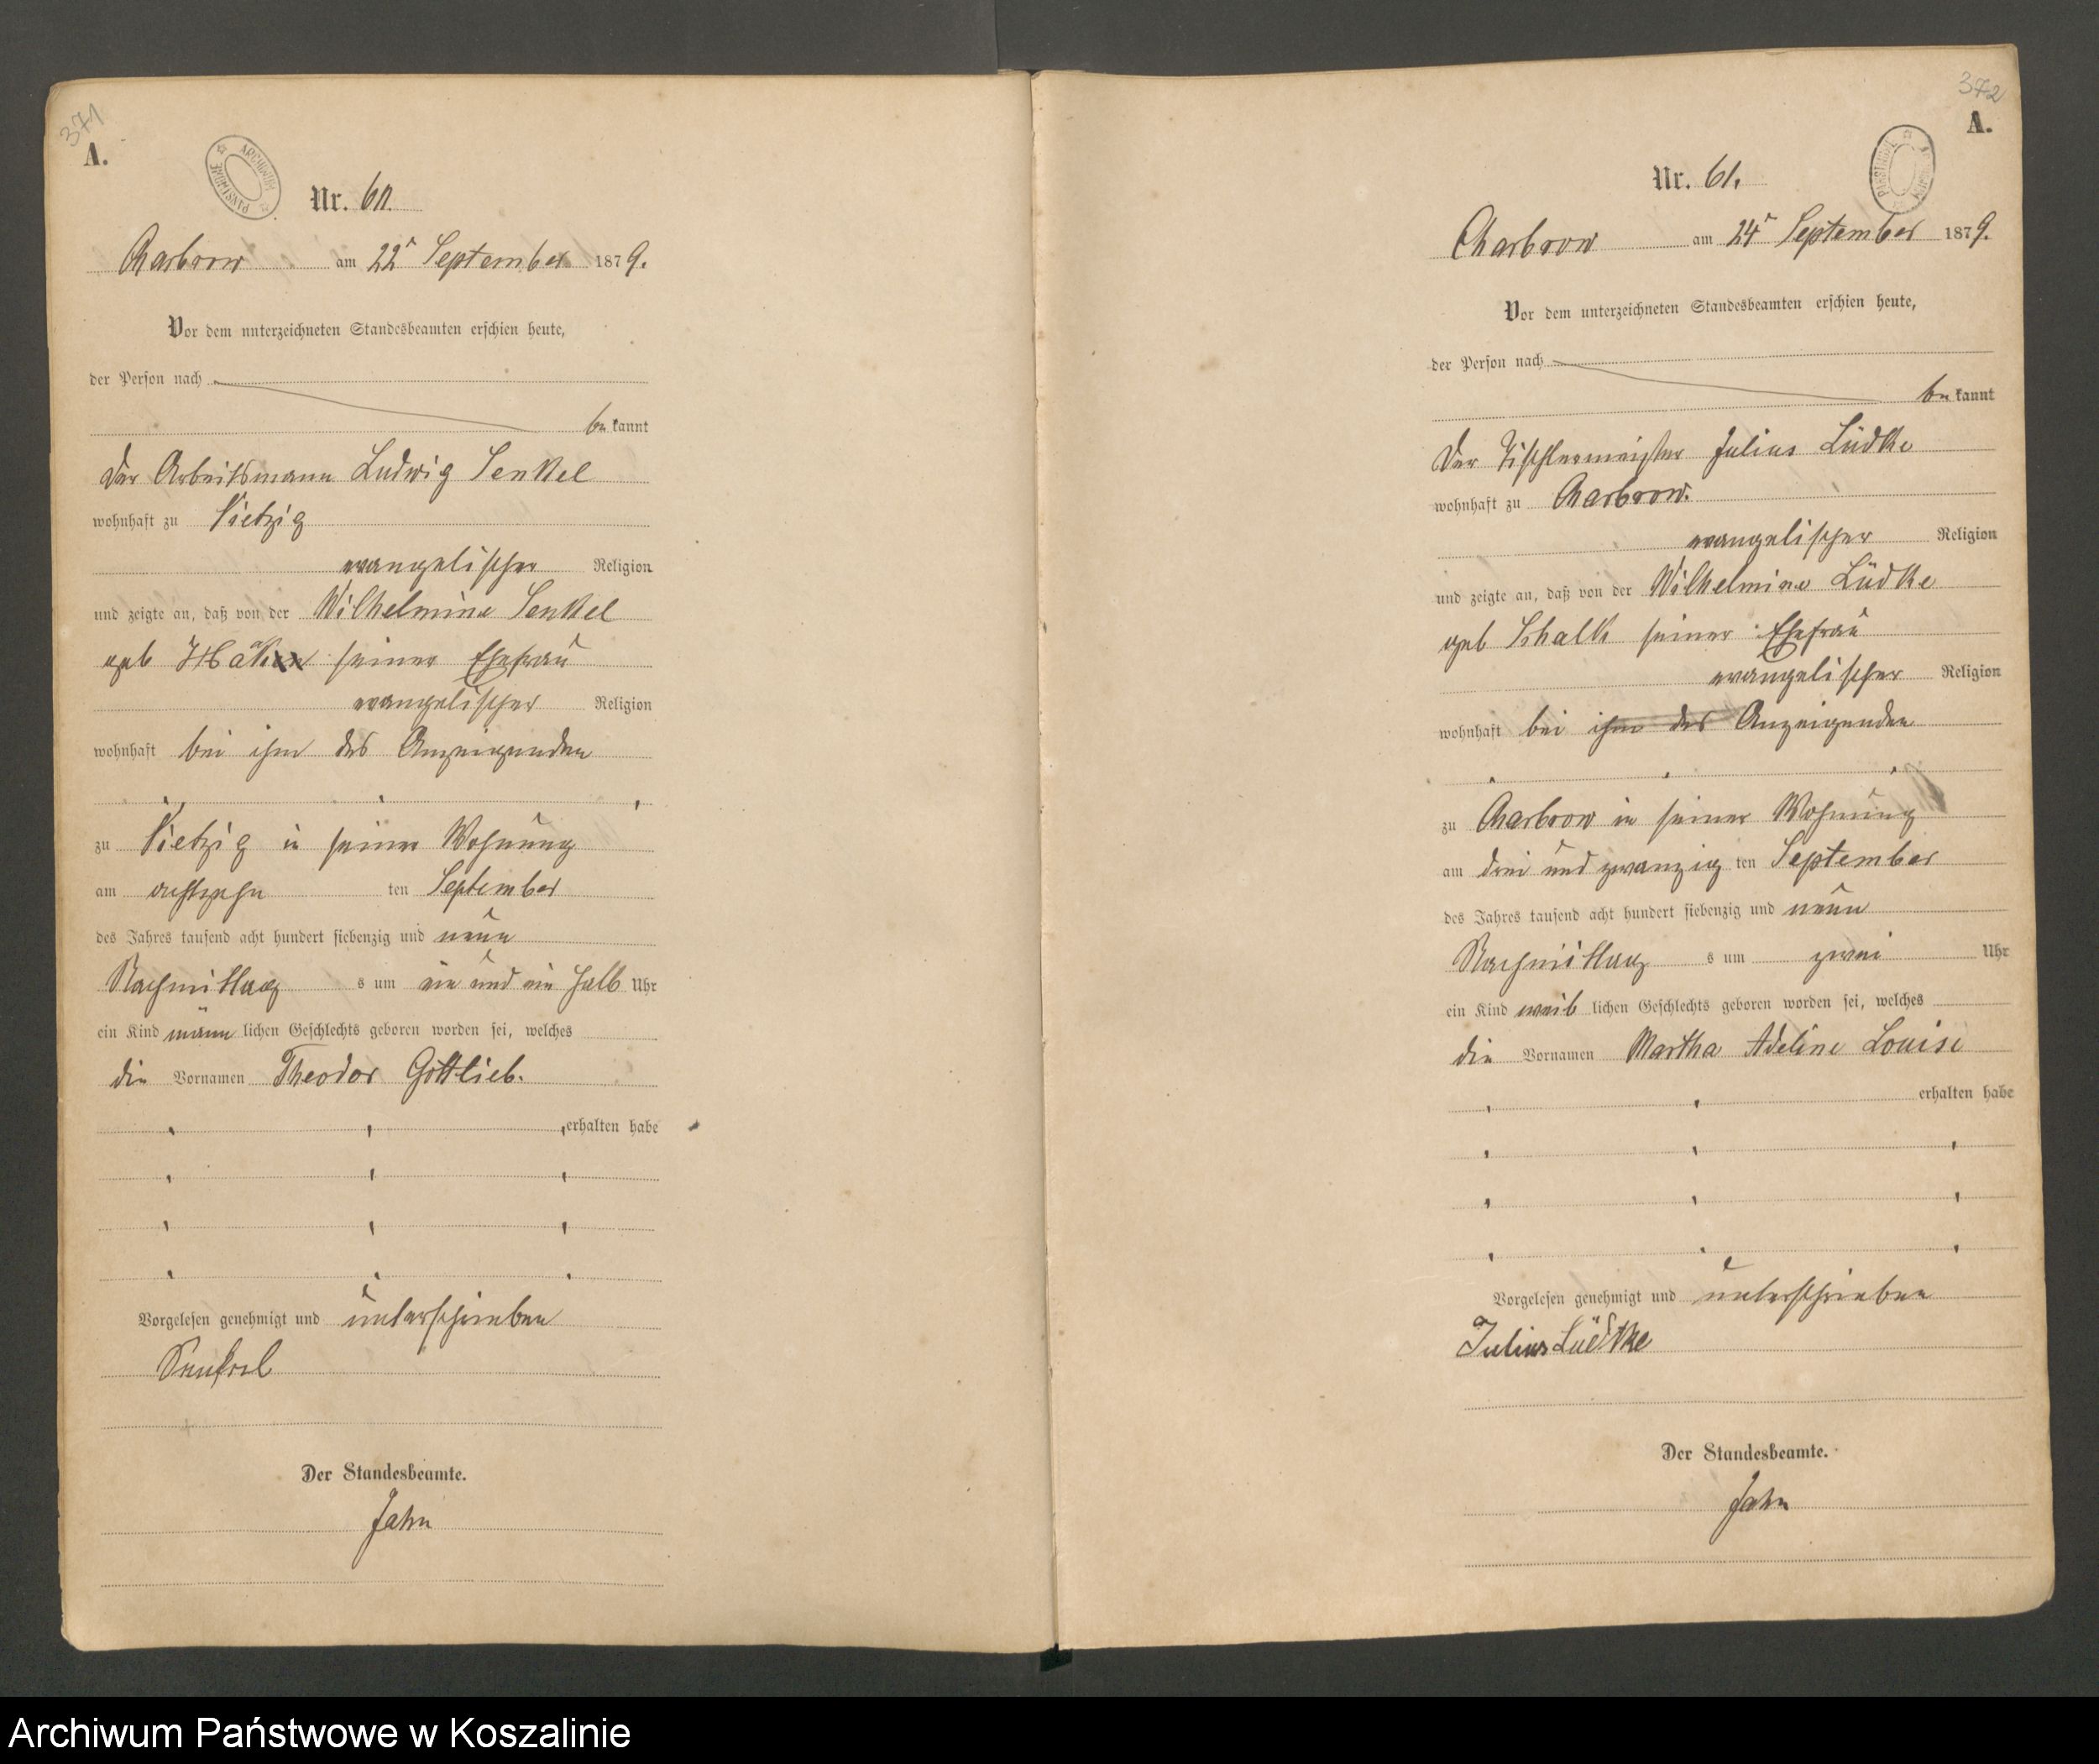 371
A.
ARCHIWUM PAŃSTWOWE
Nr. 60.
Charbrow am 22t September 1879.
Vor dem unterzeichneten Standesbeamten erschien heute,
der Person nach
be kannt
der Arbeitsmann Ludwig Senkel
wohnhaft zu Vietzig
evangelischer Religion
und zeigte an, daß von der Wilhelmine Senkel
geb seiner Ehefrau
evangelischer Religion
wohnhaft bei ihm des Anzeigenden
zu Vietzig in seiner Wohnung
am achtzehn ten September
des Jahres tausend acht hundert siebenzig und neun
Nachmittag s um ein und ein halb Uhr
ein Kind männ lichen Geschlechts geboren worden sei, welches
die Vornamen Theodor Gottlieb.
erhalten habe
Vorgelesen genehmigt und unterschrieben
Der Standesbeamte.
Jahn
372
A.
ARCHIWUM PAŃSTWOWE
Nr. 61.
Charbrow am 24t September 1879.
Vor dem unterzeichneten Standesbeamten erschien heute,
der Person nach
be kannt
Der Tischlermeister Julius Lüdke
wohnhaft zu Charbrow.
evangelischer Religion
und zeigte an, daß von der Wilhelmine Lüdke
geb Schalk seiner Ehefrau
evangelischer Religion
wohnhaft bei ihm des Anzeigenden
zu Charbrow in seiner Wohnung
am drei und zwanzig ten September
des Jahres tausend acht hundert siebenzig und neun
Nachmittag s um zwei Uhr
ein Kind weib lichen Geschlechts geboren worden sei, welches
die Vornamen Martha Adeline Louise
erhalten habe
Vorgelesen genehmigt und unterschrieben
Julius Lüedtke
Der Standesbeamte.
Jahn
Archiwum Państwowe w Koszalinie